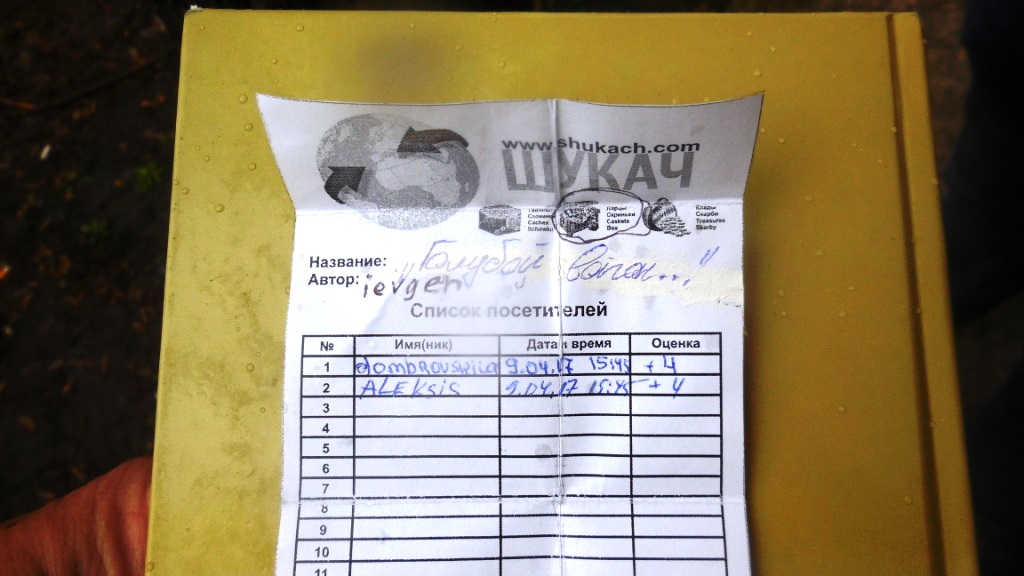 www.shukach.com
ШУКАЧ
Caches
Ларцы
Скриньки
Caskets
Box
Клады
Скарби
Treasures
Skarby
Название: "Голубой вагон..."
Автор: ievgen
Список посетителей
№ Имя(ник) Дата и время Оценка
1 9.04.17 15:45 +4
2 ALEKSIS 9.04.17 15:45 +4
3
4
5
6
7
8
9
10
11